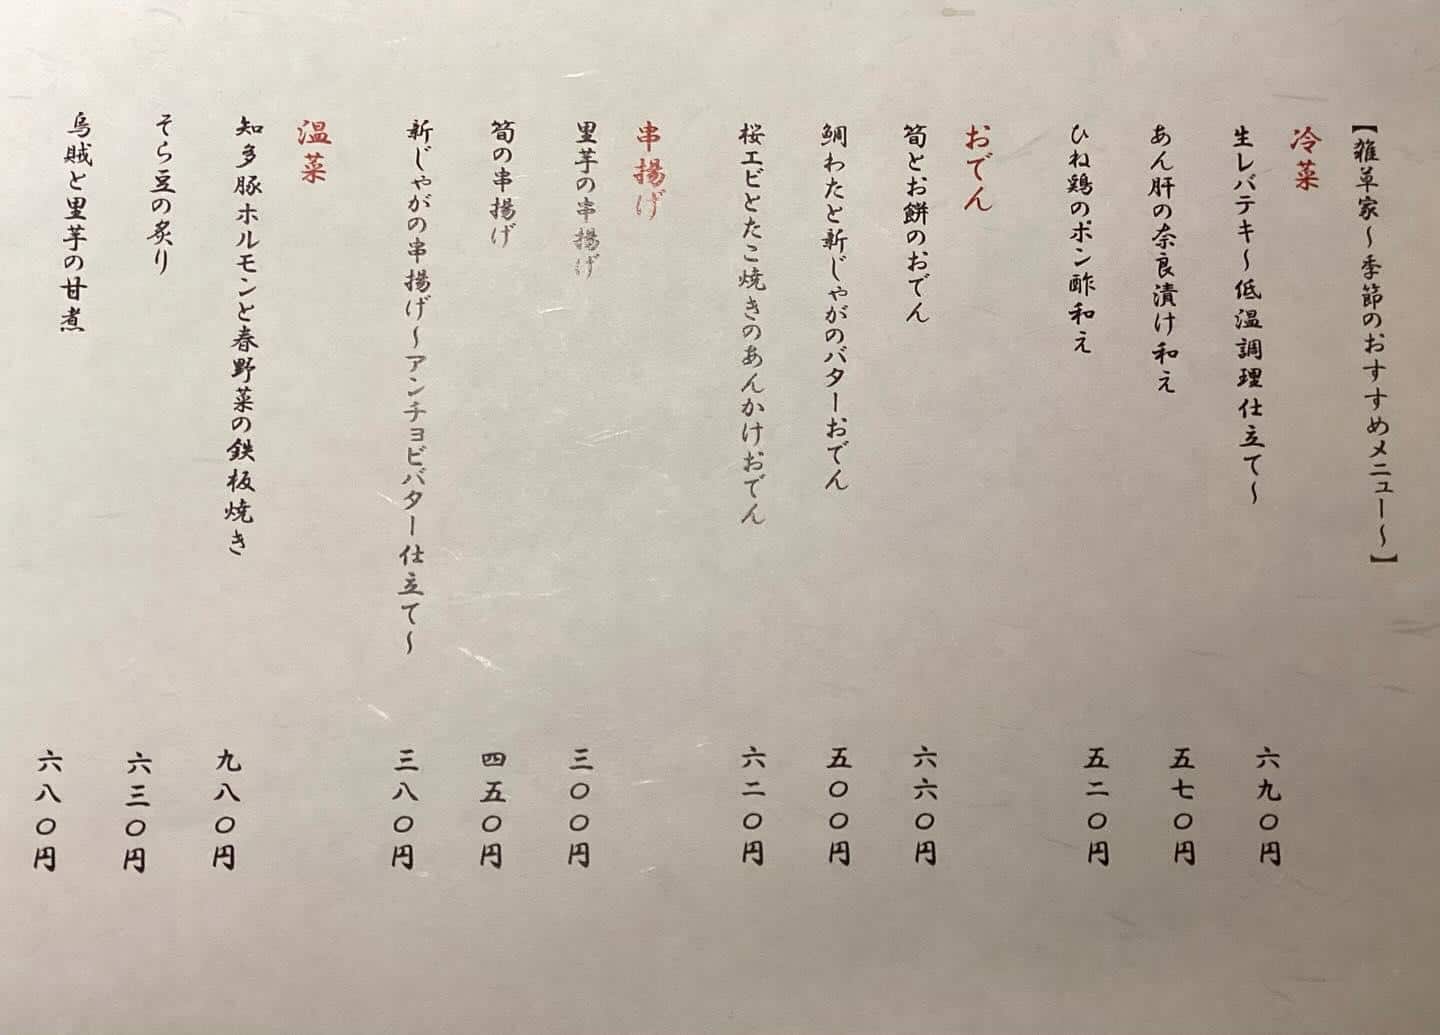 【雑草家～季節のおすすめメニュー～】
冷菜
生レバテキ～低温調理仕立て～ 六九〇円
あん肝の奈良漬け和え 五七〇円
ひね鶏のポン酢和え 五二〇円
おでん
筍とお餅のおでん 六六〇円
鯛わたと新じゃがのバターおでん 五〇〇円
桜エビとたこ焼きのあんかけおでん 六二〇円
串揚げ
里芋の串揚げ 三〇〇円
筍の串揚げ 四五〇円
新じゃがの串揚げ～アンチョビバター仕立て～ 三八〇円
温菜
知多豚ホルモンと春野菜の鉄板焼き 九八〇円
そら豆の炙り 六三〇円
烏賊と里芋の甘煮 六八〇円